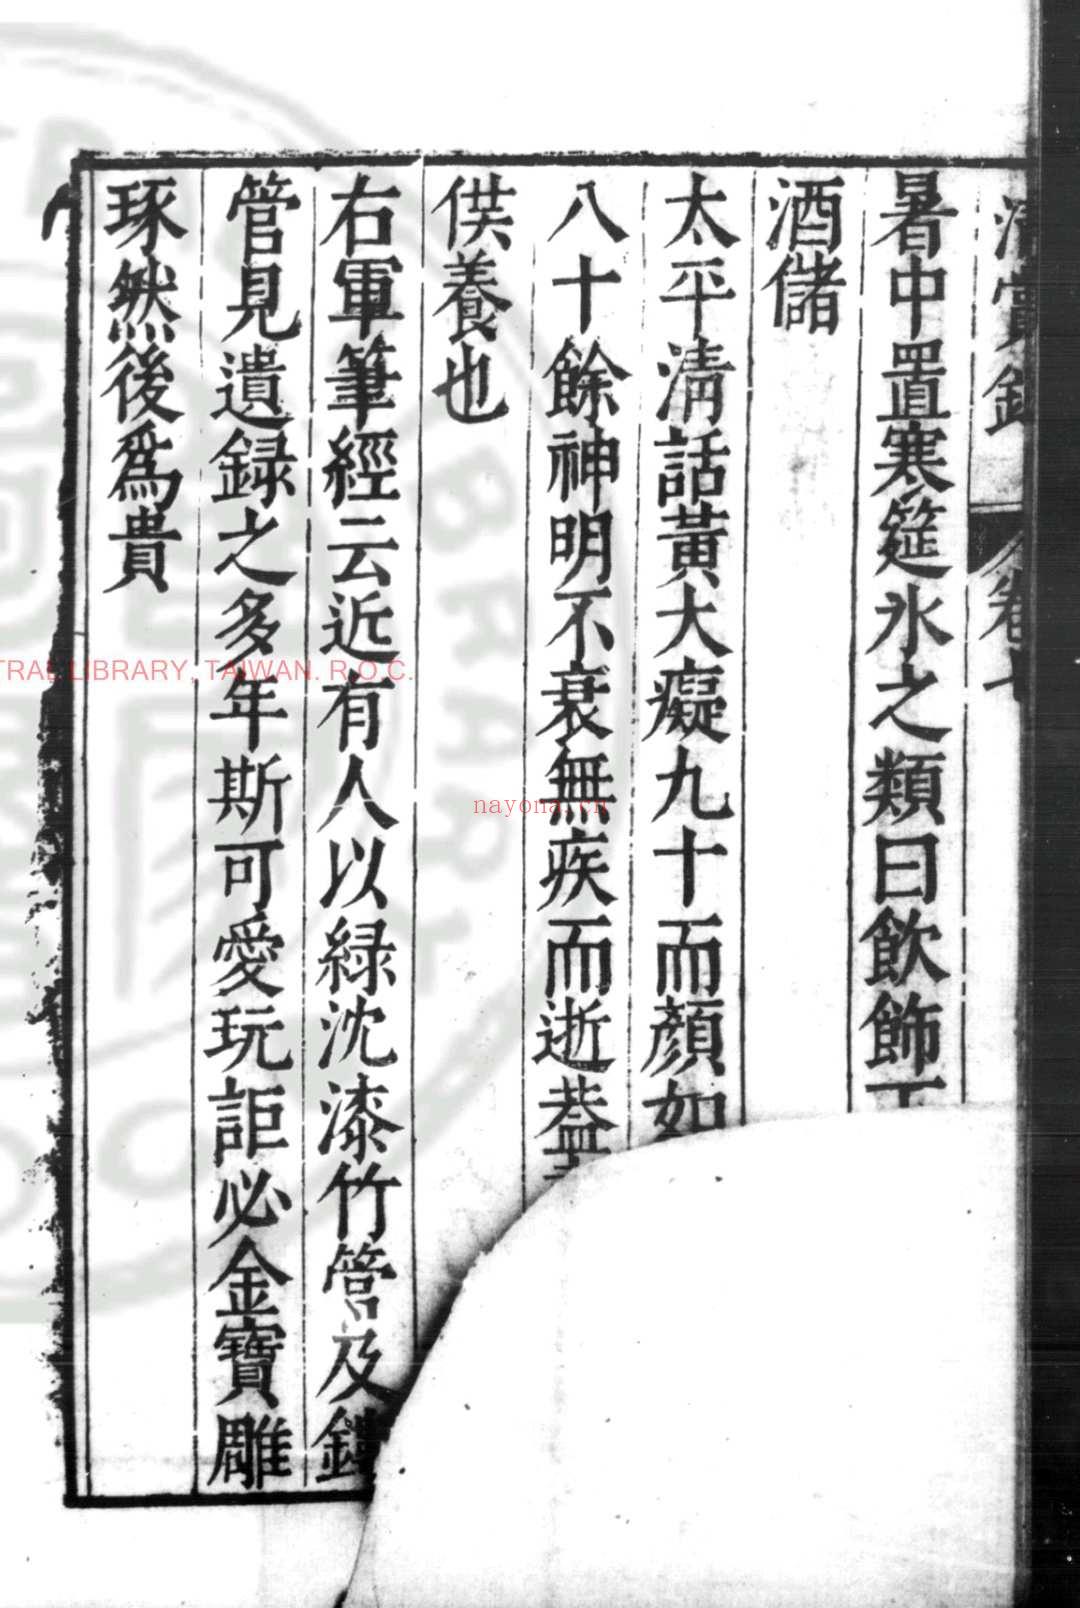 清賞錄 卷七
暑中置寒筵氷之類曰飲飾
酒儲
太平清話黃大癡九十而顏如
八十餘神明不衰無疾而逝葢
供養也
右軍筆經云近有人以綠沈漆竹管及鏤
管見遺録之多年斯可愛玩詎必金寶雕
琢然後爲貴
NTRAL LIBRARY, TAIWAN. R.O.C.
nayona.cn